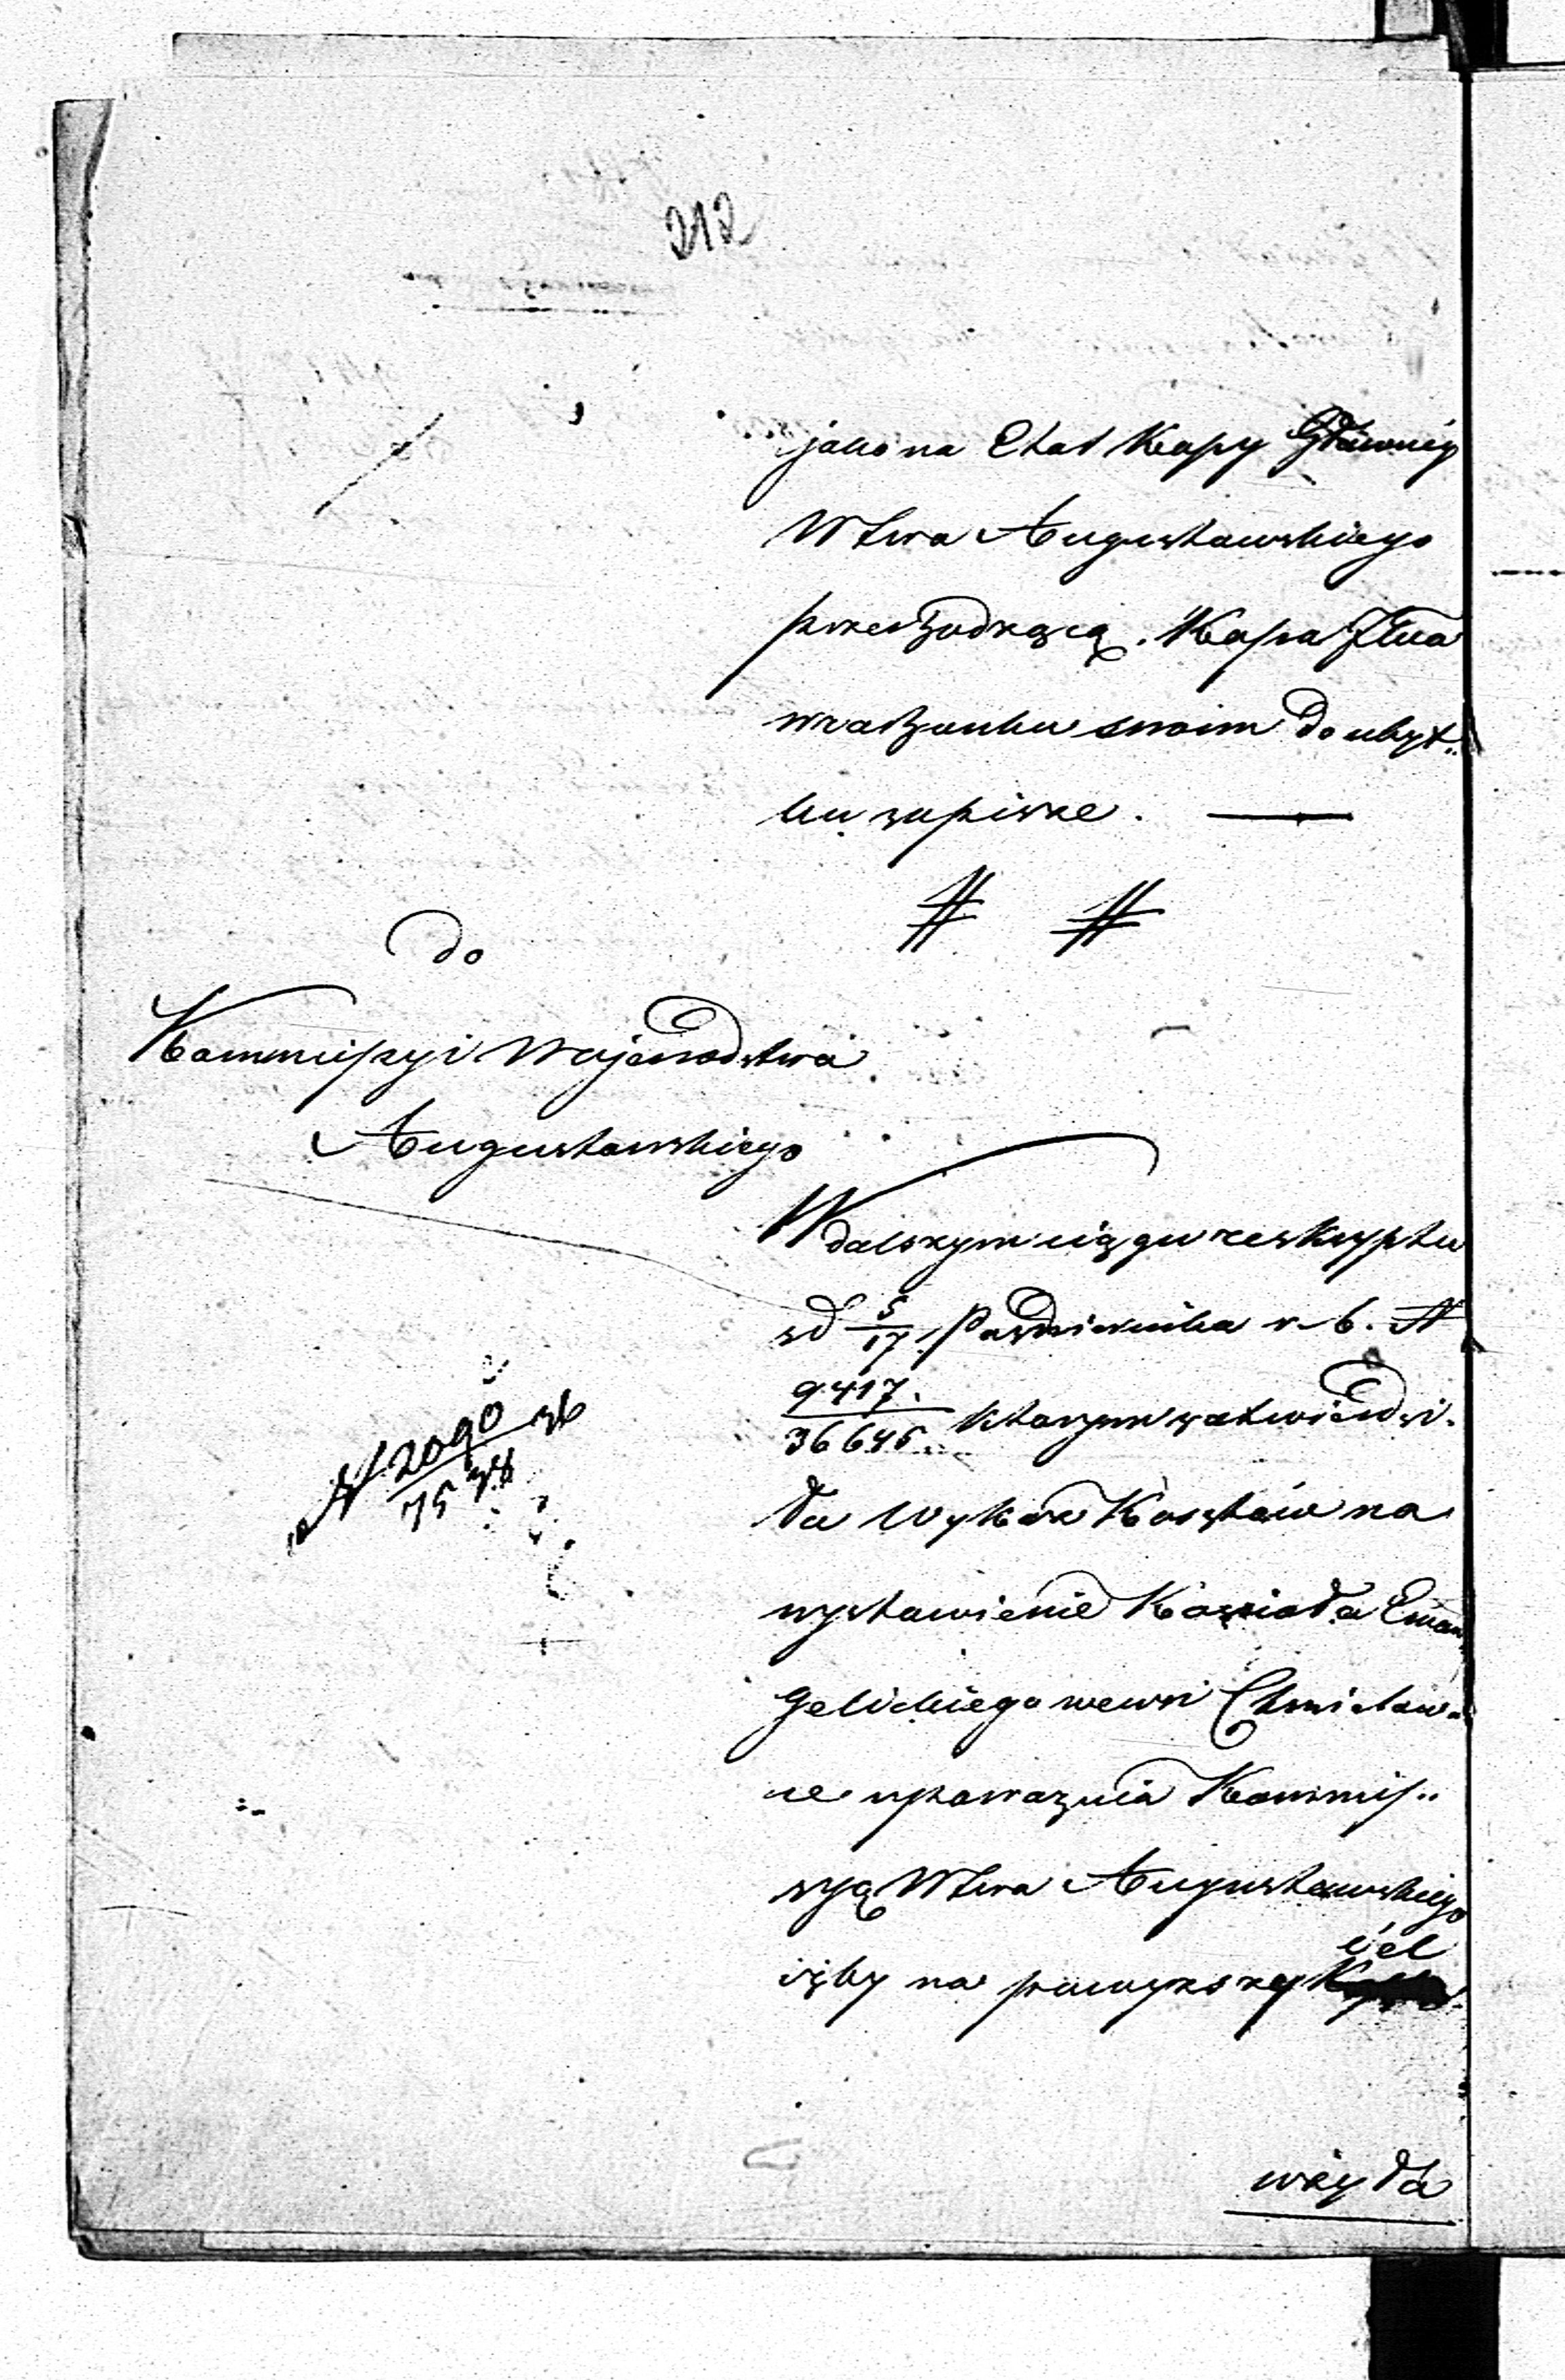 212
jako na Etat Kassy Głównéy
Wtwa Augustowskiego
przechodzącą. Kassa Jlna
w rachunku swoim do ubyt„
ku zapisze. —
# #
do
Kommissyi Województwa
Augustowskiego
W dalszym ciągu reskryptu
od 5/17 Października r. b. N
9417./36645. którym zatwierdzi„
ła Wykaz Kosztów na
wystawienie Kościoła Ewan„
gelickiego we wsi Chmielów„
ce upoważnia Kommis„
syą Wtwa Augustowskiego
iżby na powyższy cel
N 2090/7538 36
wzięła